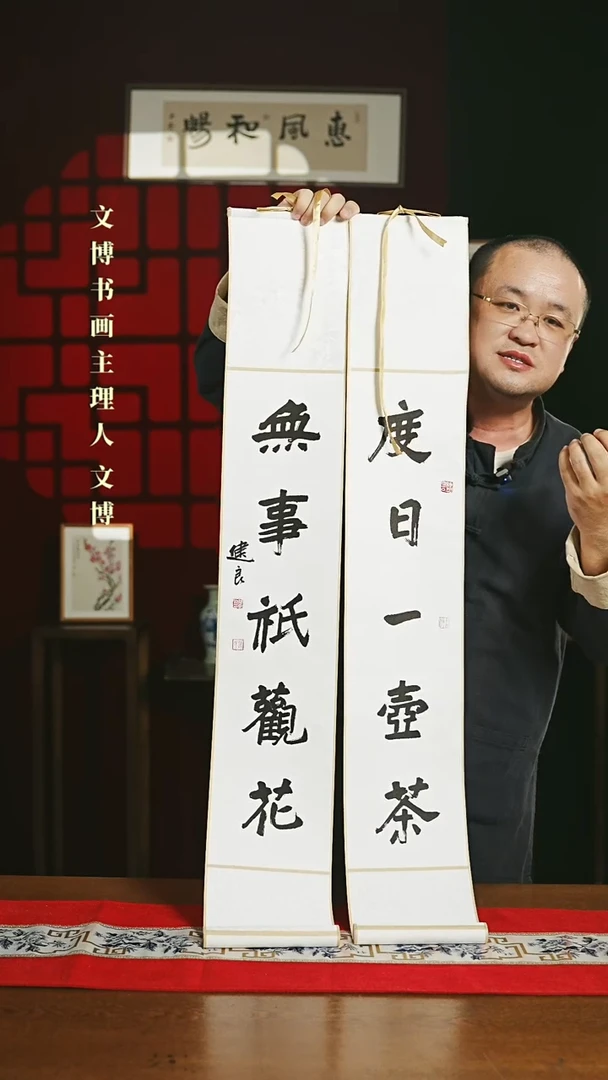 惠風和暢
文博书画主理人 文博
度日一壺茶
無事祇觀花
建良